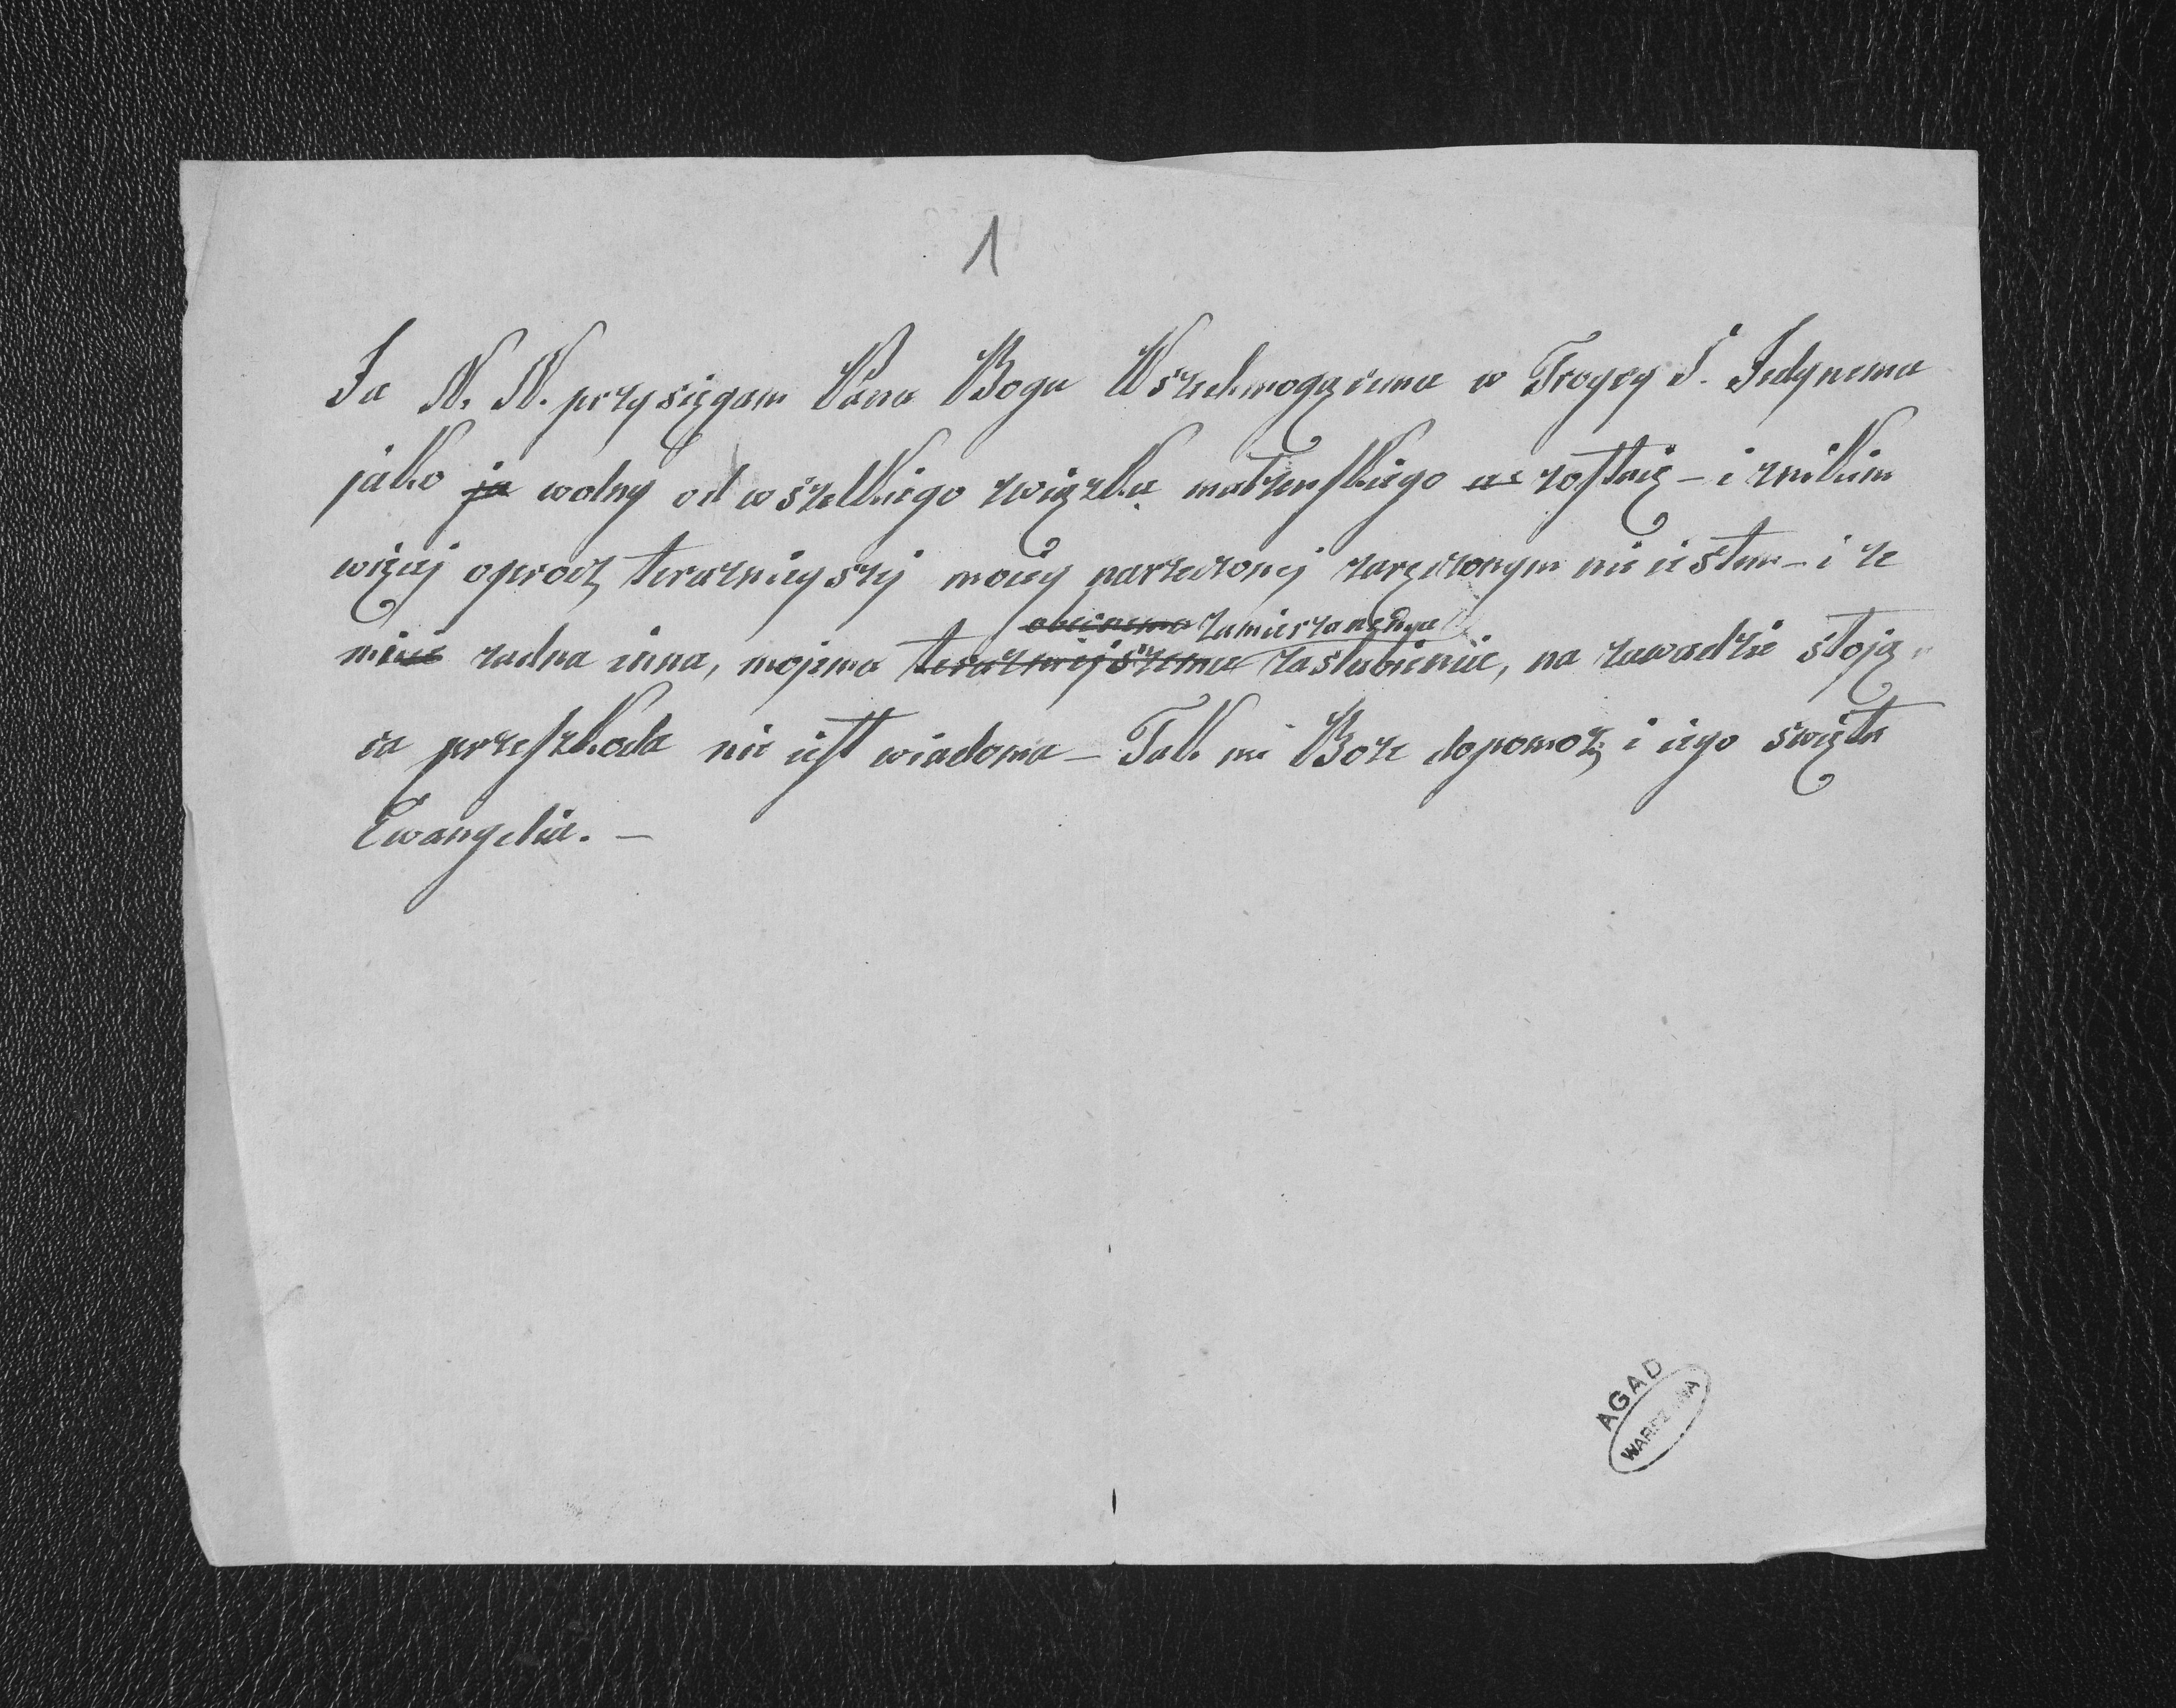 1
Ja N. N. przysięgam Panu Bogu Wszechmogącemu w Troycy S. Jedynemu
jako ja wolny od wszelkiego związku małżenskiego zostaię – i znikim
więcej oprocz terazniejszej moiey narzeczonej zaręczonym nie iestem – i ze
obecnemu zamierzanemu
mi zadna inna, mojemu terazniejszemu zaslubieniu, na zawadzie stoją
ca przeszkoda nie iest wiadoma – Tak mi Boze dopomoz i iego swięta
Ewangelia. –
AGAD
WARSZAWA